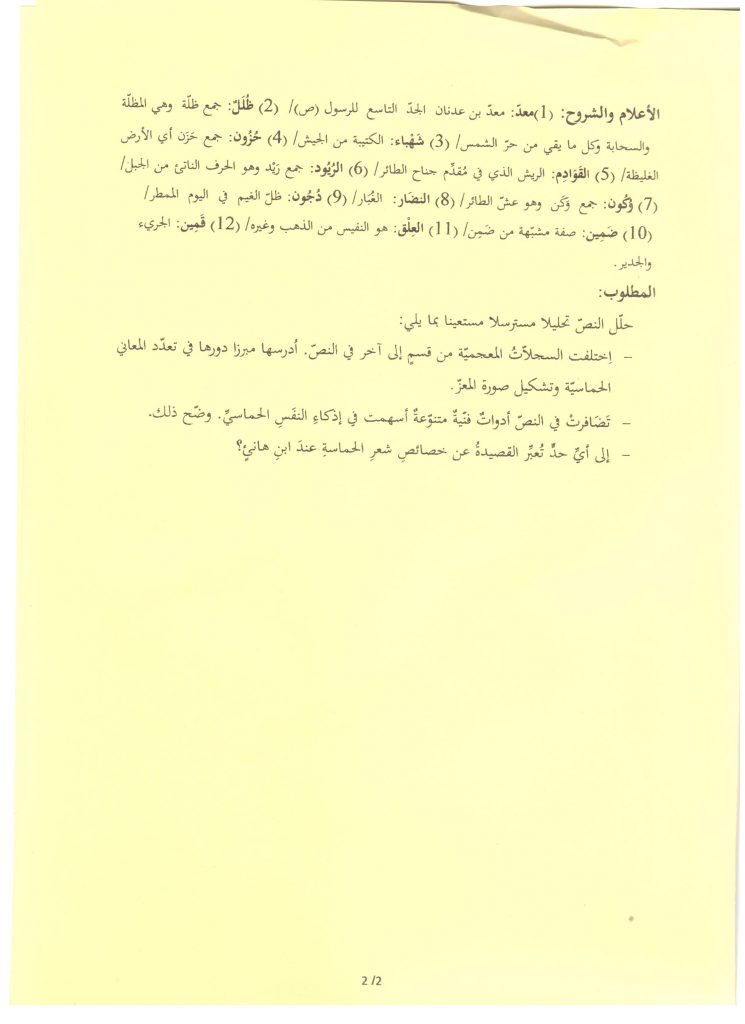 الأعلام والشروح: (1)معدّ: معدّ بن عدنان الجدّ التاسع للرسول (ص)/ (2) ظُلَلٌ: جمع ظلّة وهي المظلّة
والسحابة وكل ما يقي من حرّ الشمس/ (3) شَهْباء: الكتيبة من الجيش/ (4) حُزُون: جمع حَزَن أي الأرض
الغليظة/ (5) القَوَادِم: الريش الذي في مُقدّم جناح الطائر/ (6) الرُيُود: جمع رَيْد وهو الحرف الناتئ من الجبل/
(7) وُكُون: جمع وَكَن وهو عشّ الطائر/ (8) النضَار: الغُبَار/ (9) دُجُون: ظلّ الغيم في اليوم الممطر/
(10) ضَمِين: صفة مشبّهة من ضَمِن/ (11) العِلْق: هو النفيس من الذهب وغيره/ (12) قَمِين: الجريء
والجدير.
المطلوب:
حلّل النصّ تحليلا مسترسلا مستعينا بما يلي:
– اِختلفت السجلاّتُ المعجميّة من قسمٍ إلى آخر في النصّ. أدرسها مبرزا دورها في تعدّد المعاني
الحماسيّة وتشكيل صورة المعزّ.
– تَضَافرتْ في النصّ أدواتٌ فنّيةٌ متنوّعةٌ أسهمت في إذكاءِ النفَسِ الحماسيِّ. وضّح ذلك.
– إلى أيِّ حدٍّ تُعبِّر القصيدةُ عن خصائصِ شعرِ الحماسةِ عندَ ابنِ هانئٍ؟
2 /2